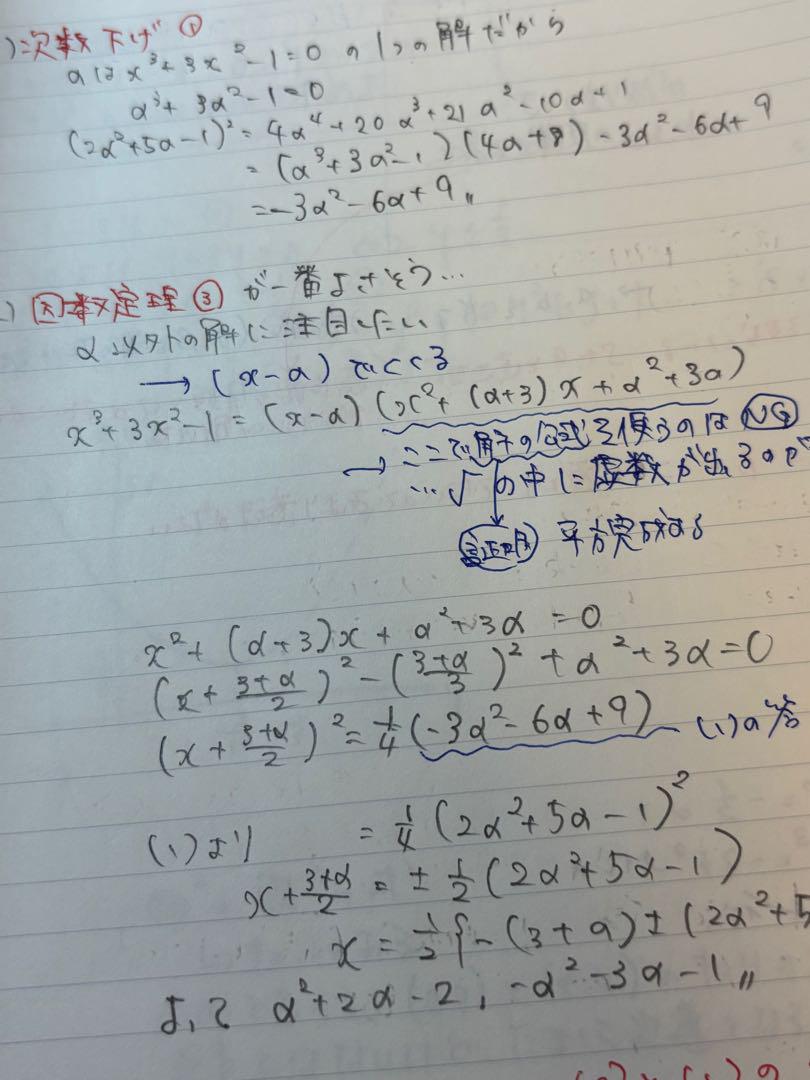 )次数下げ ①
αはx³+3x²-1=0の1つの解だから
α³+3α²-1=0
(2α²+5α-1)²=4α⁴+20α³+21α²-10α+1
=(α³+3α²-1)(4α+8)-3α²-6α+9
=-3α²-6α+9〃
)因数定理③が一番よさそう…
α以外の解に注目したい
→(x-α)でくくる
x³+3x²-1=(x-α)(x²+(α+3)x+α²+3α)
→ここで解の公式を使うのはNG
…√の中に虚数が出るので
平方完成する
x²+(α+3)x+α²+3α=0
(x+\frac{3+α}{2})²-(\frac{3+α}{3})²+α²+3α=0
(x+\frac{3+α}{2})²=\frac{1}{4}(-3α²-6α+9) (1)の答
(1)より =\frac{1}{4}(2α²+5α-1)²
x+\frac{3+α}{2}=±\frac{1}{2}(2α²+5α-1)
x=\frac{1}{2}{-(3+α)±(2α²+5
よって α²+2α-2, -α²-3α-1〃